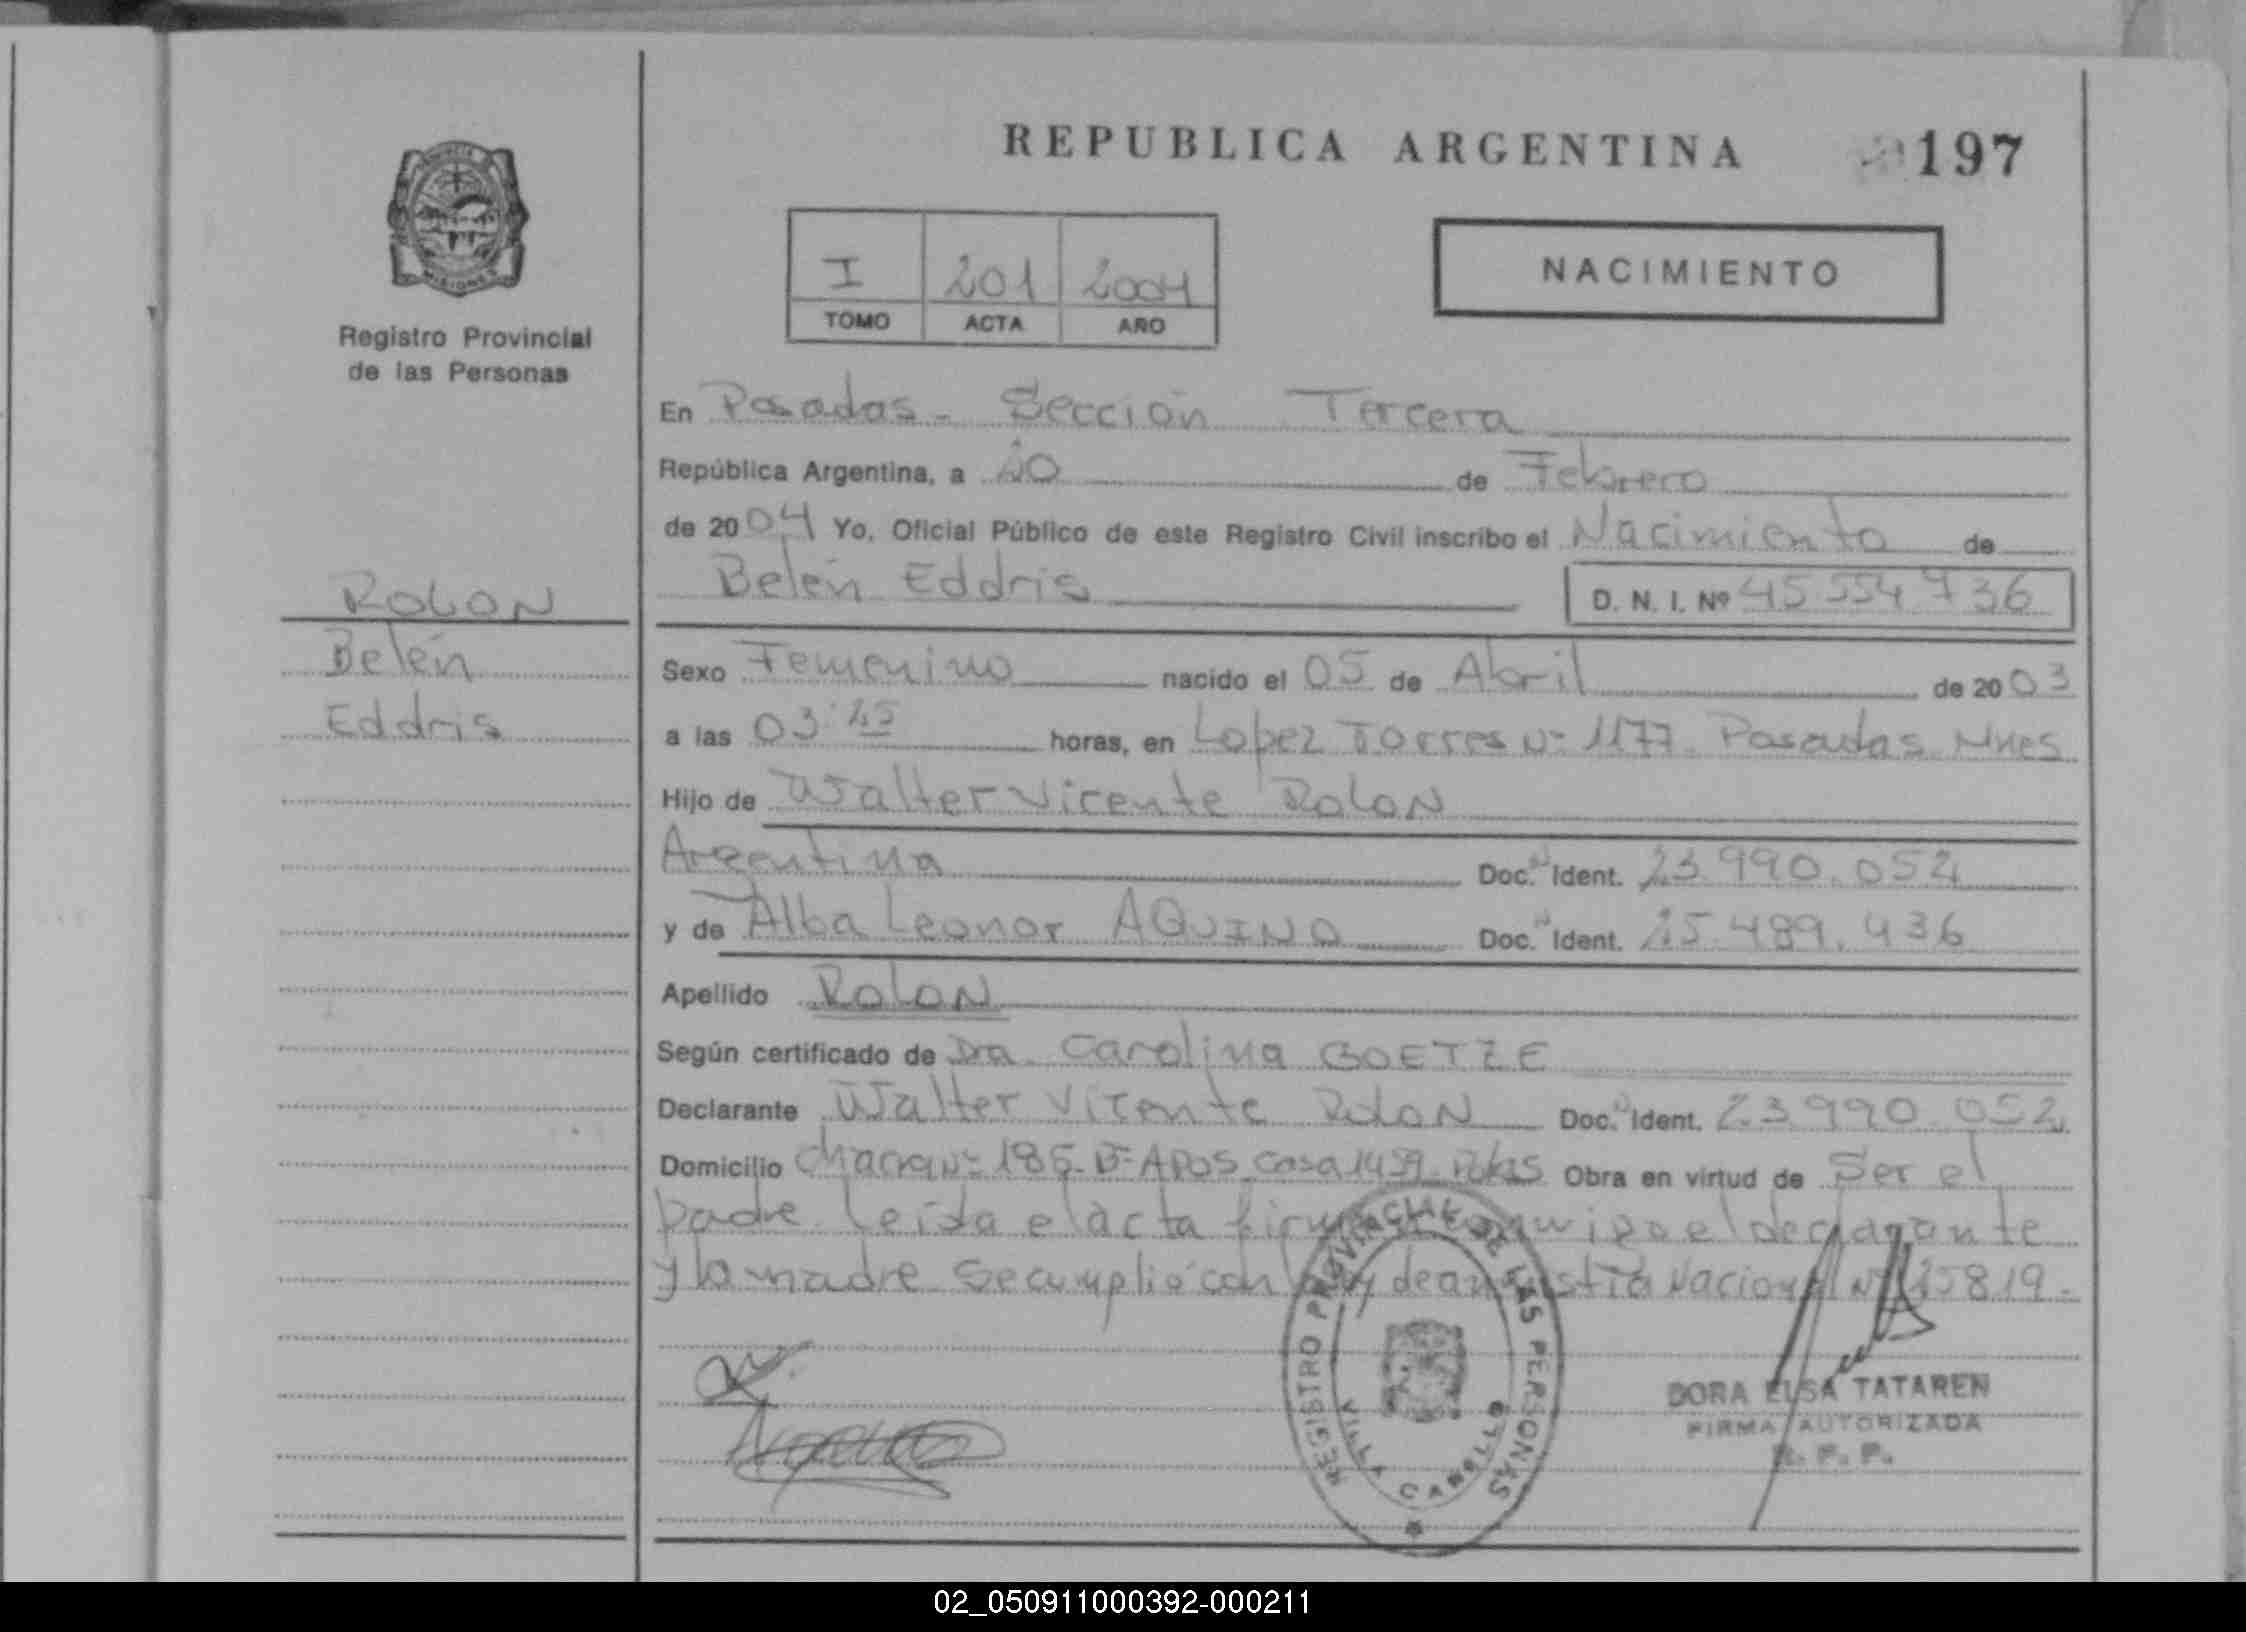 REPUBLICA ARGENTINA
197
Registro Provincial
de las Personas
I 201 2004
TOMO ACTA AÑO
NACIMIENTO
En Posadas - Sección Tercera
República Argentina, a 20 de Febrero
de 2004 Yo, Oficial Público de este Registro Civil inscribo el Nacimiento de
Belén Eddris D. N. I. Nº 45 554 736
ROLON
Belén
Eddris
Sexo Femenino nacido el 05 de Abril de 2003
a las 03:25 horas, en Lopez Torres Nº 1177 Posadas Mnes
Hijo de Walter Vicente ROLON
Argentina Doc. N Ident. 23.990.052
y de Alba Leonor AQUINO Doc. N Ident. 25.489.436
Apellido ROLON
Según certificado de Dra Carolina GOETZE
Declarante Walter Vicente ROLON Doc. N Ident. 23.990.052
Domicilio Chacra Nº 185 Bº A Casa 1459 Pdas Obra en virtud de Ser el
padre Leída el acta el declarante
y la madre Se cumplió con Ley de amnistía Nacional Nº 25819.-
REGISTRO PROVINCIAL DE LAS PERSONAS
VILLA CABELLO
DORA ELSA TATAREN
FIRMA AUTORIZADA
R. P. P.
02_050911000392-000211